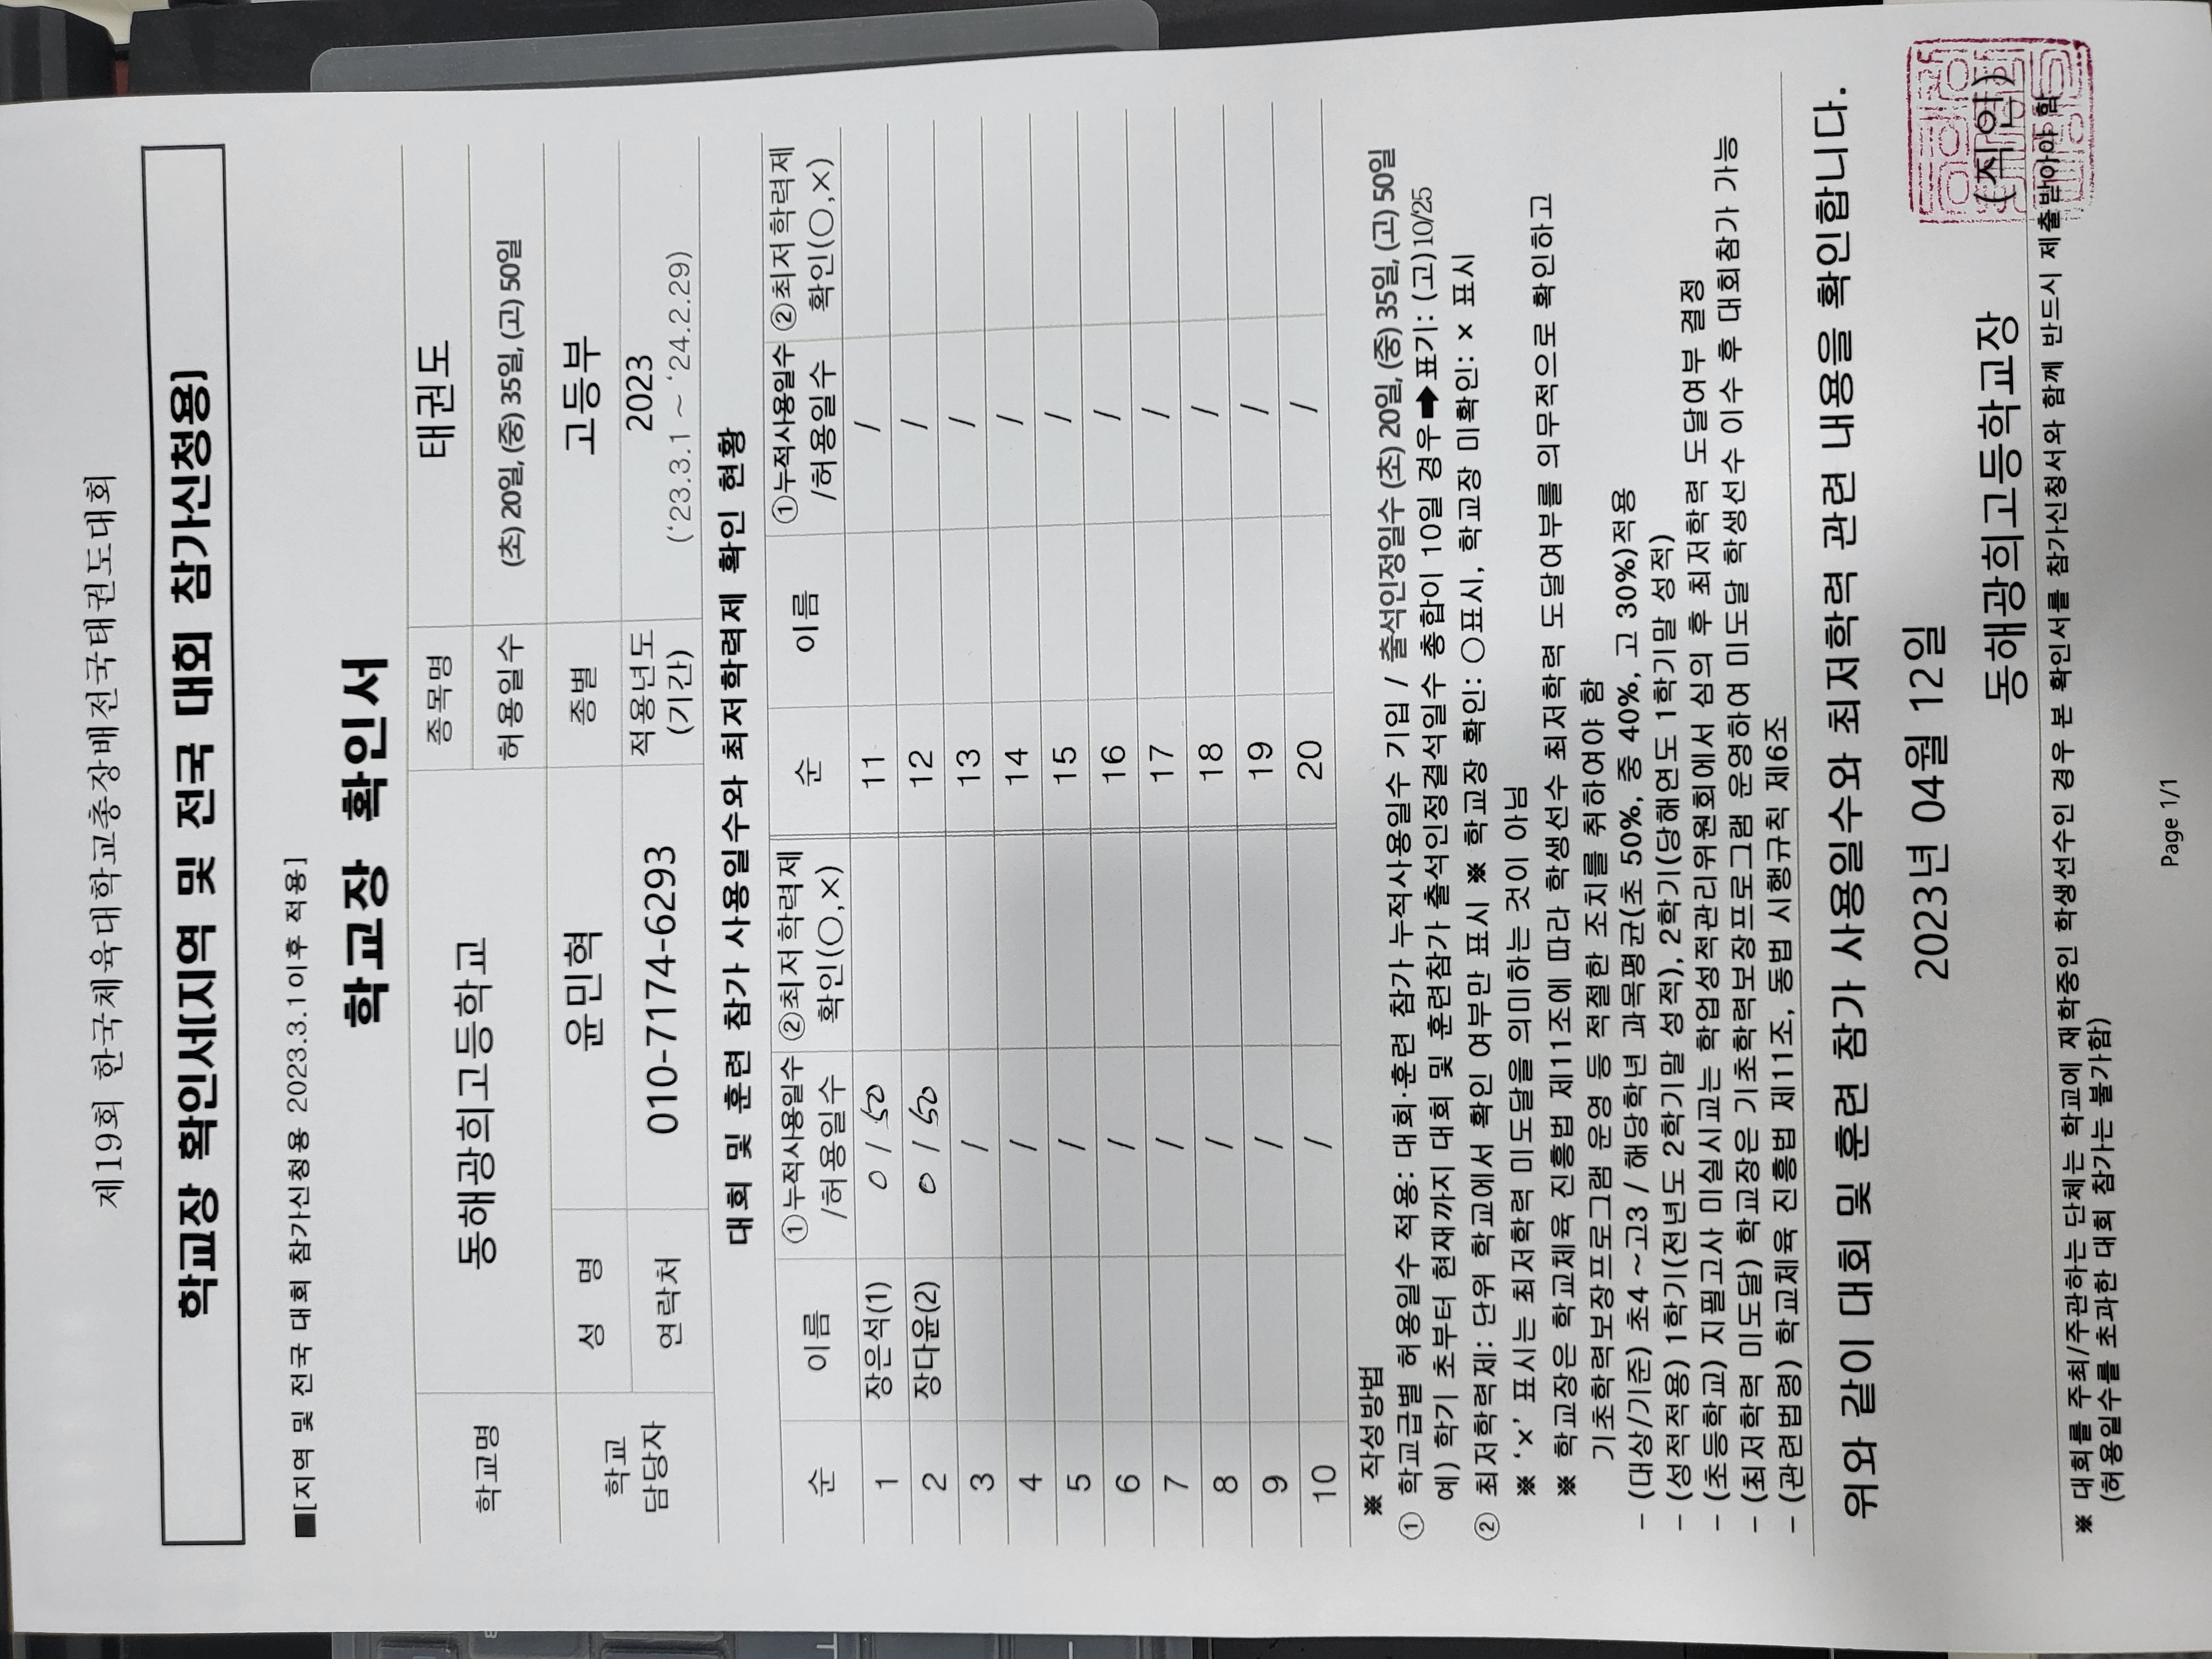 제19회 한국체육대학교총장배전국태권도대회
학교장 확인서(지역 및 전국 대회 참가신청용)
■[지역 및 전국 대회 참가신청용 2023.3.1이후 적용]
학교장 확인서
학교명 동해광희고등학교 종목명 태권도
허용일수 (초) 20일, (중) 35일, (고) 50일
학교 담당자 성 명 윤민혁 종별 고등부
연락처 010-7174-6293 적용년도 (기간) 2023
(‘23.3.1 ~ ‘24.2.29)
대회 및 훈련 참가 사용일수와 최저학력제 확인 현황
순 이름 ①누적사용일수 /허용일수 ②최저학력제 확인(○,×) 순 이름 ①누적사용일수 /허용일수 ②최저학력제 확인(○,×)
1 장은석(1) 0 / 50 11 /
2 장다윤(2) 0 / 50 12 /
3 / 13 /
4 / 14 /
5 / 15 /
6 / 16 /
7 / 17 /
8 / 18 /
9 / 19 /
10 / 20 /
※ 작성방법
① 학교급별 허용일수 적용: 대회·훈련 참가 누적사용일수 기입 / 출석인정일수 (초) 20일, (중) 35일, (고) 50일
예) 학기 초부터 현재까지 대회 및 훈련참가 출석인정결석일수 총합이 10일 경우➡표기: (고)10/25
② 최저학력제: 단위 학교에서 확인 여부만 표시 ※ 학교장 확인: ○표시, 학교장 미확인: × 표시
※ ‘×’ 표시는 최저학력 미도달을 의미하는 것이 아님
※ 학교장은 학교체육 진흥법 제11조에 따라 학생선수 최저학력 도달여부를 의무적으로 확인하고
기초학력보장프로그램 운영 등 적절한 조치를 취하여야 함
- (대상/기준) 초4 ~고3 / 해당학년 과목평균(초 50%, 중 40%, 고 30%)적용
- (성적적용) 1학기(전년도 2학기말 성적), 2학기(당해연도 1학기말 성적)
- (초등학교) 지필고사 미실시교는 학업성적관리위원회에서 심의 후 최저학력 도달여부 결정
- (최저학력 미도달) 학교장은 기초학력보장프로그램 운영하여 미도달 학생선수 이수 후 대회참가 가능
- (관련법령) 학교체육 진흥법 제11조, 동법 시행규칙 제6조
위와 같이 대회 및 훈련 참가 사용일수와 최저학력 관련 내용을 확인합니다.
2023년 04월 12일
동해광희고등학교장 (직인)
※ 대회를 주최/주관하는 단체는 학교에 재학중인 학생선수인 경우 본 확인서를 참가신청서와 함께 반드시 제출받아야 함
(허용일수를 초과한 대회 참가는 불가함)
Page 1/1